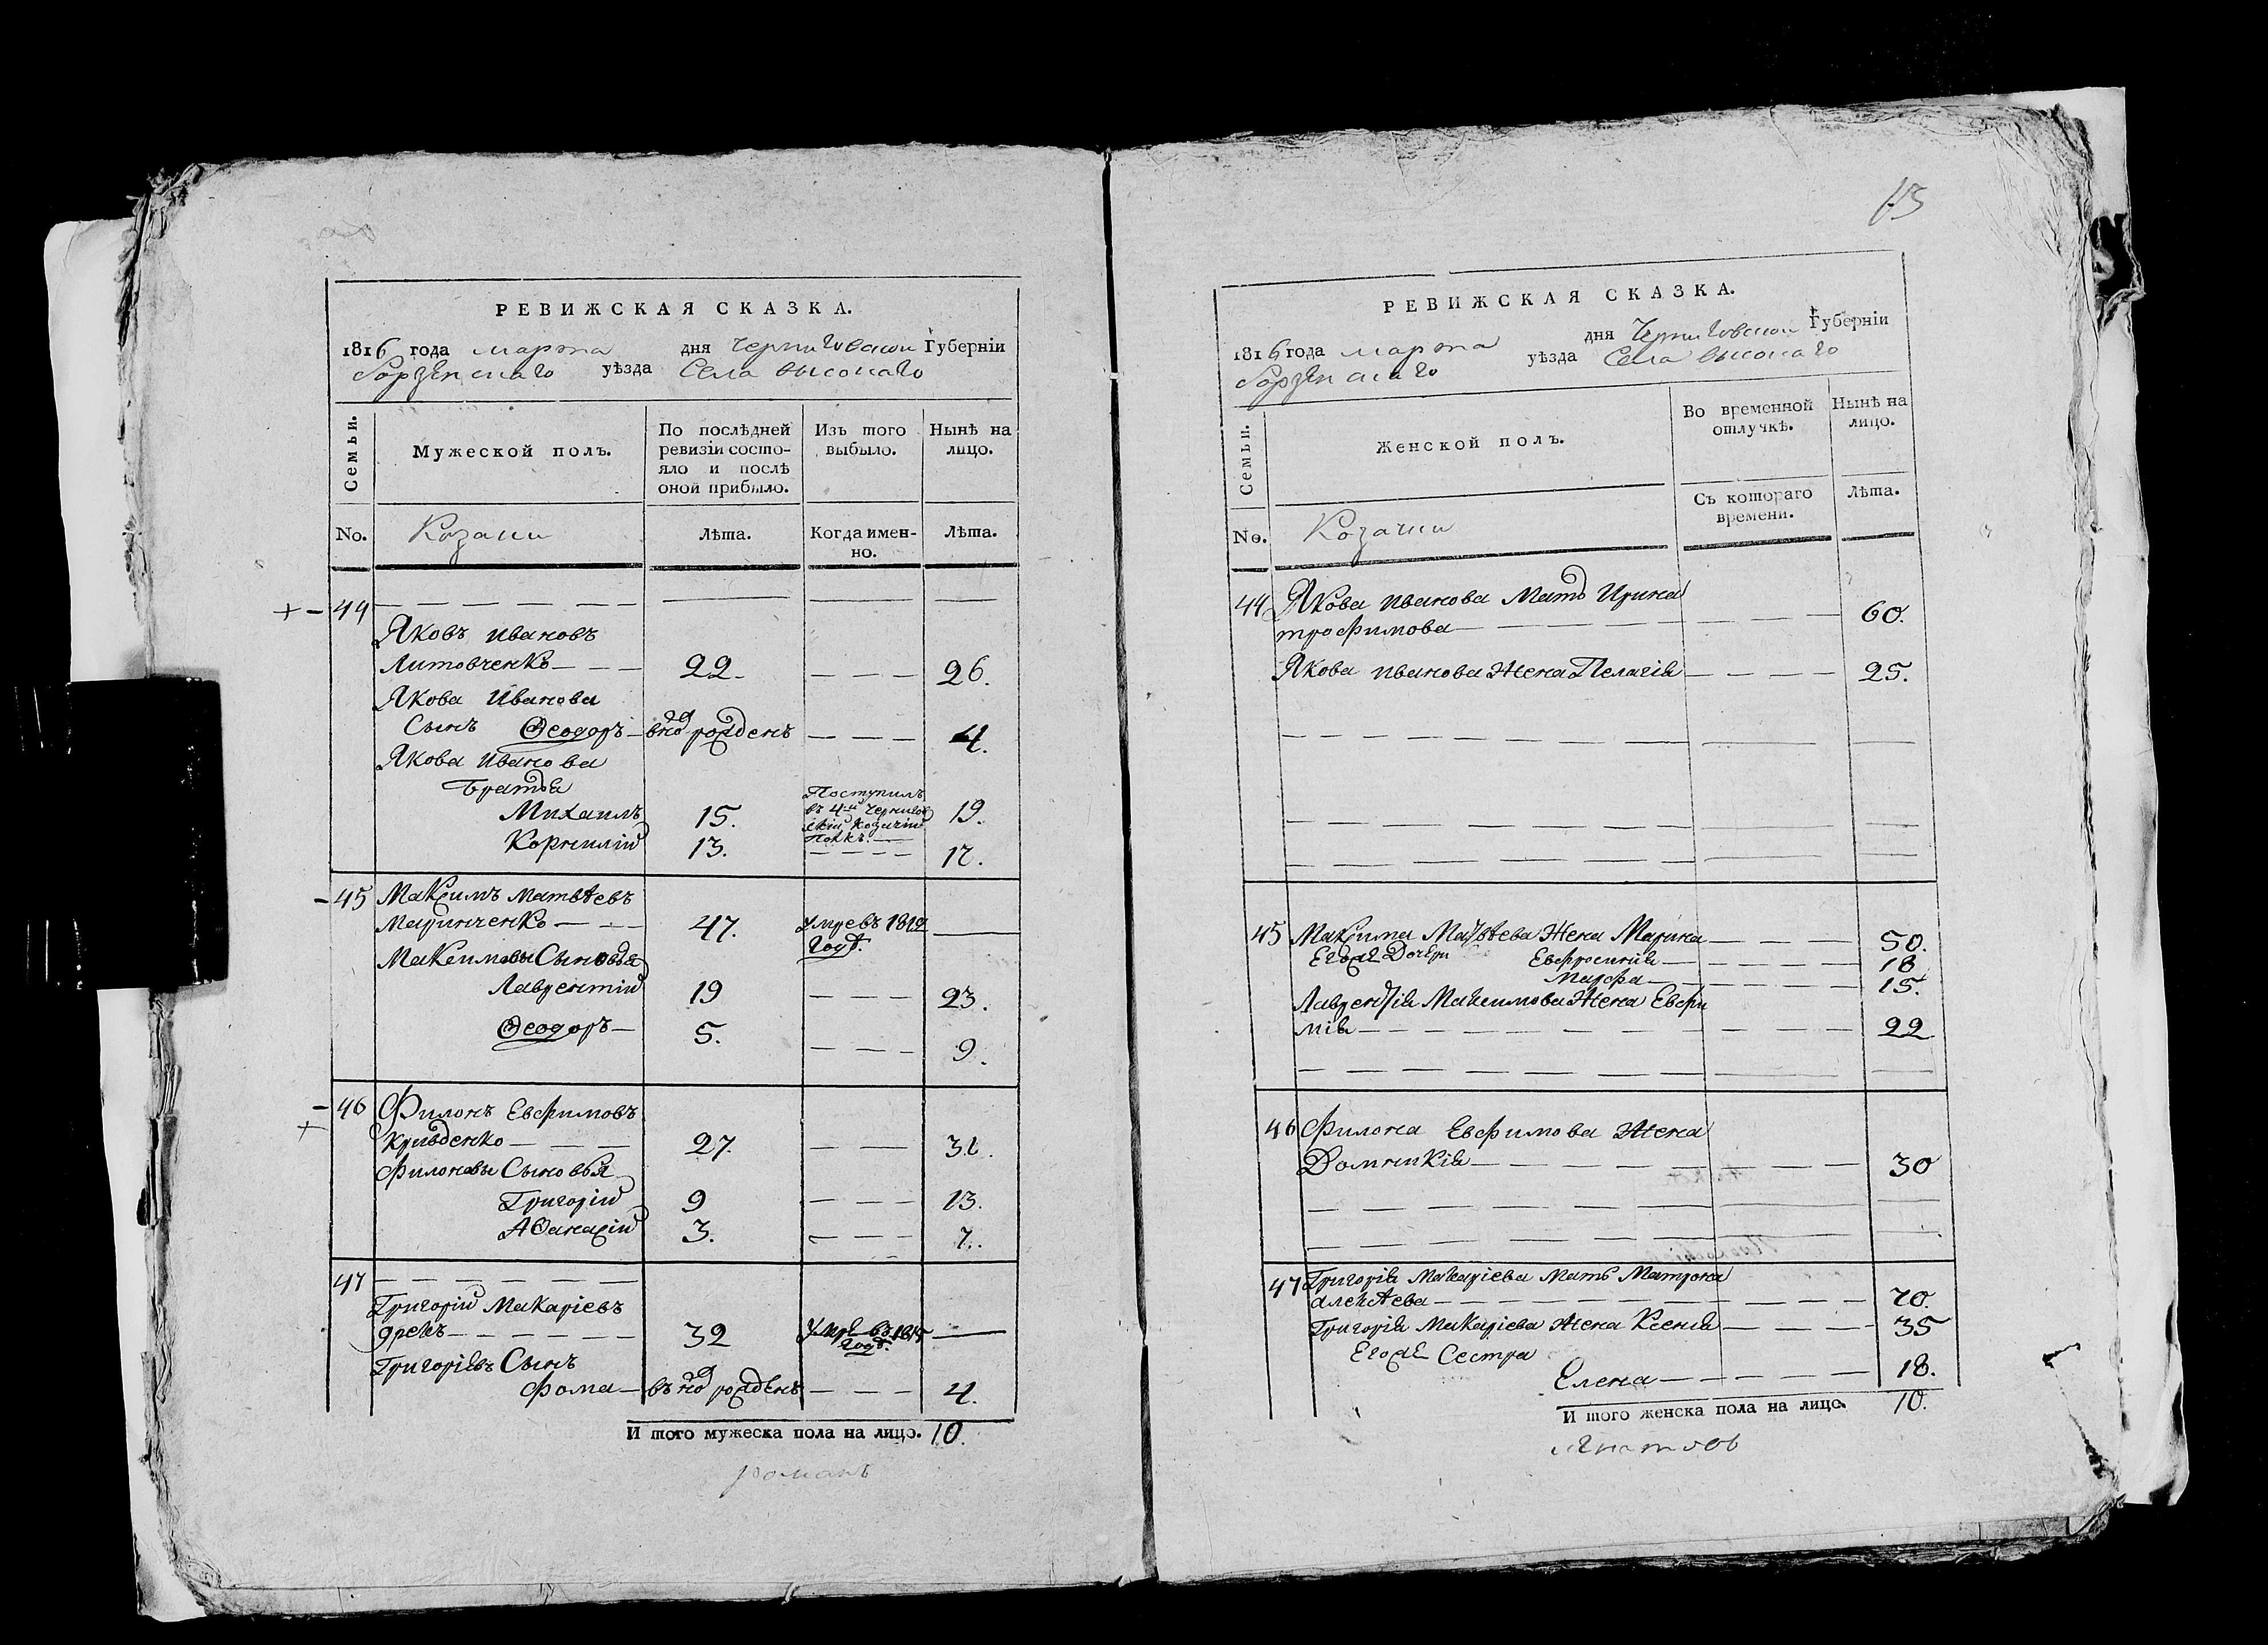 РЕВИЖСКАЯ СКАЗКА.
1816 года марта дня Черниговской Губерніи
Борзенскаго уѣзда Села высокаго
Семьи.
Мужеской полъ.
По послѣдней ревизіи состо-
яло и послѣ
оной прибыло.
Изъ того
выбыло.
Нынѣ на
лицо.
No. Козаки Лѣта. Когда имен-
но. Лѣта.
44
Яковъ Ивановъ
Литовченко 22. 26.
Якова Иванова
Сынъ Ѳеодоръ вно рожденъ 4.
Якова Иванова
Братья
Михаилъ 15. Поступилъ
въ 4й Чернигов
скій Козачій
Полкъ. 19.
Корнилій 13. 17.
45 Максимъ Матвѣевъ
Маринченко 47. Умре въ 1812
Годѣ.
Максимовы Сыновья
Лаврентій 19 23.
Ѳеодоръ 5. 9.
46 Филонъ Евфимовъ
Кривденко 27. 31.
Филоновы Сыновья
Григорій 9 13.
Аѳанасій 3. 7.
47
Григорій Макаріевъ
32 Умре въ 1815
Годѣ.
Григоріевъ Сынъ
Фома въ но рожденъ 4.
И того мужеска пола на лицо. 10.
романъ
13
РЕВИЖСКАЯ СКАЗКА.
1816 года марта дня Черниговской Губерніи
Борзенскаго уѣзда Села высокаго
Семьи.
Женской полъ.
Во временной
отлучкѣ.
Нынѣ на
лицо.
Съ котораго
времени.
Лѣта.
No. Козачки
44 Якова Иванова Мать Ирина
трофимова 60.
Якова Иванова Жена Пелагія 25.
45 Максима Матвѣева Жена Марина 50.
Егожъ Дочери Евфросинія 18
Марфа 15.
Лаврентія Максимова Жена Евфи
мія 22
46 Филона Евфимова Жена
Домникія 30
47 Григорія Макаріева Мать Матрона
алексѣева 70.
Григорія Макаріева Жена Ксенія 35
Егожъ Сестра
Елена 18.
И того женска пола на лицо. 10.